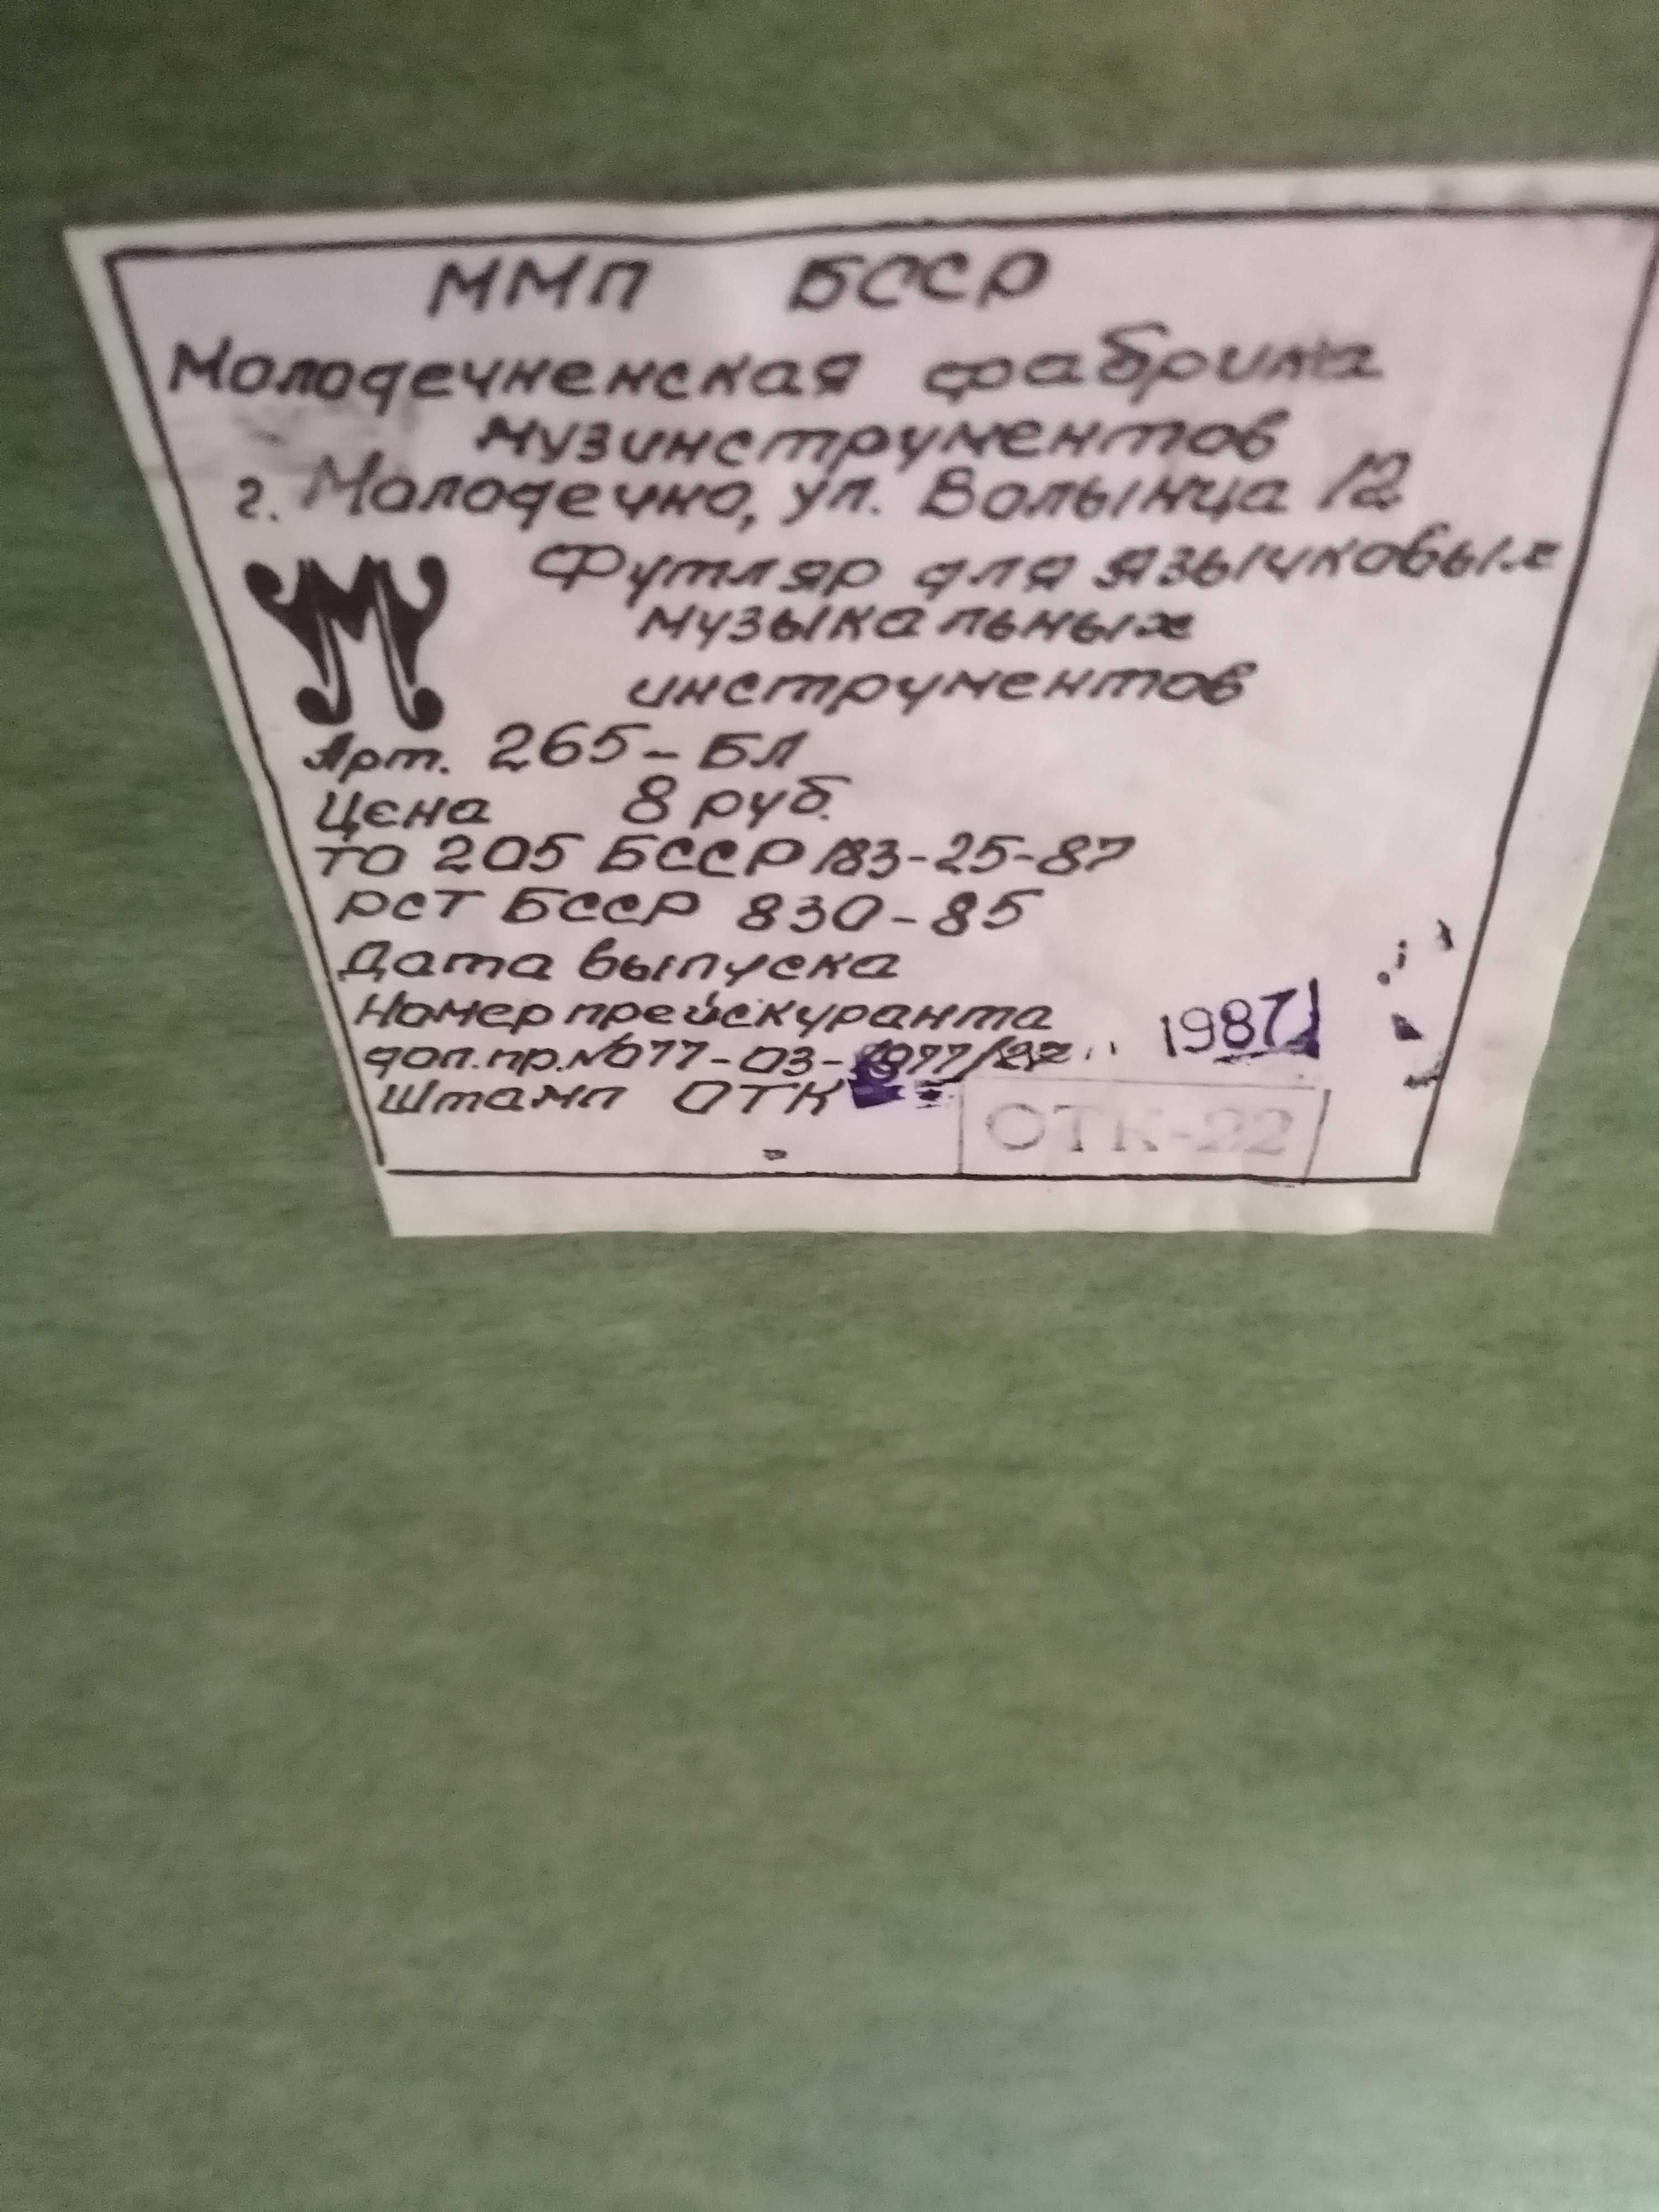 ММП БССР
Молодечненская фабрика
музинструментов
г. Молодечно, ул. Волынца 12
Футляр для язычковых
музыкальных
инструментов
Арт. 265-БЛ
Цена 8 руб.
ТО 205 БССР 183-25-87
РСТ БССР 830-85
Дата выпуска
Номер прейскуранта
1987
доп.пр.№077-03-
Штамп ОТК
ОТК-22